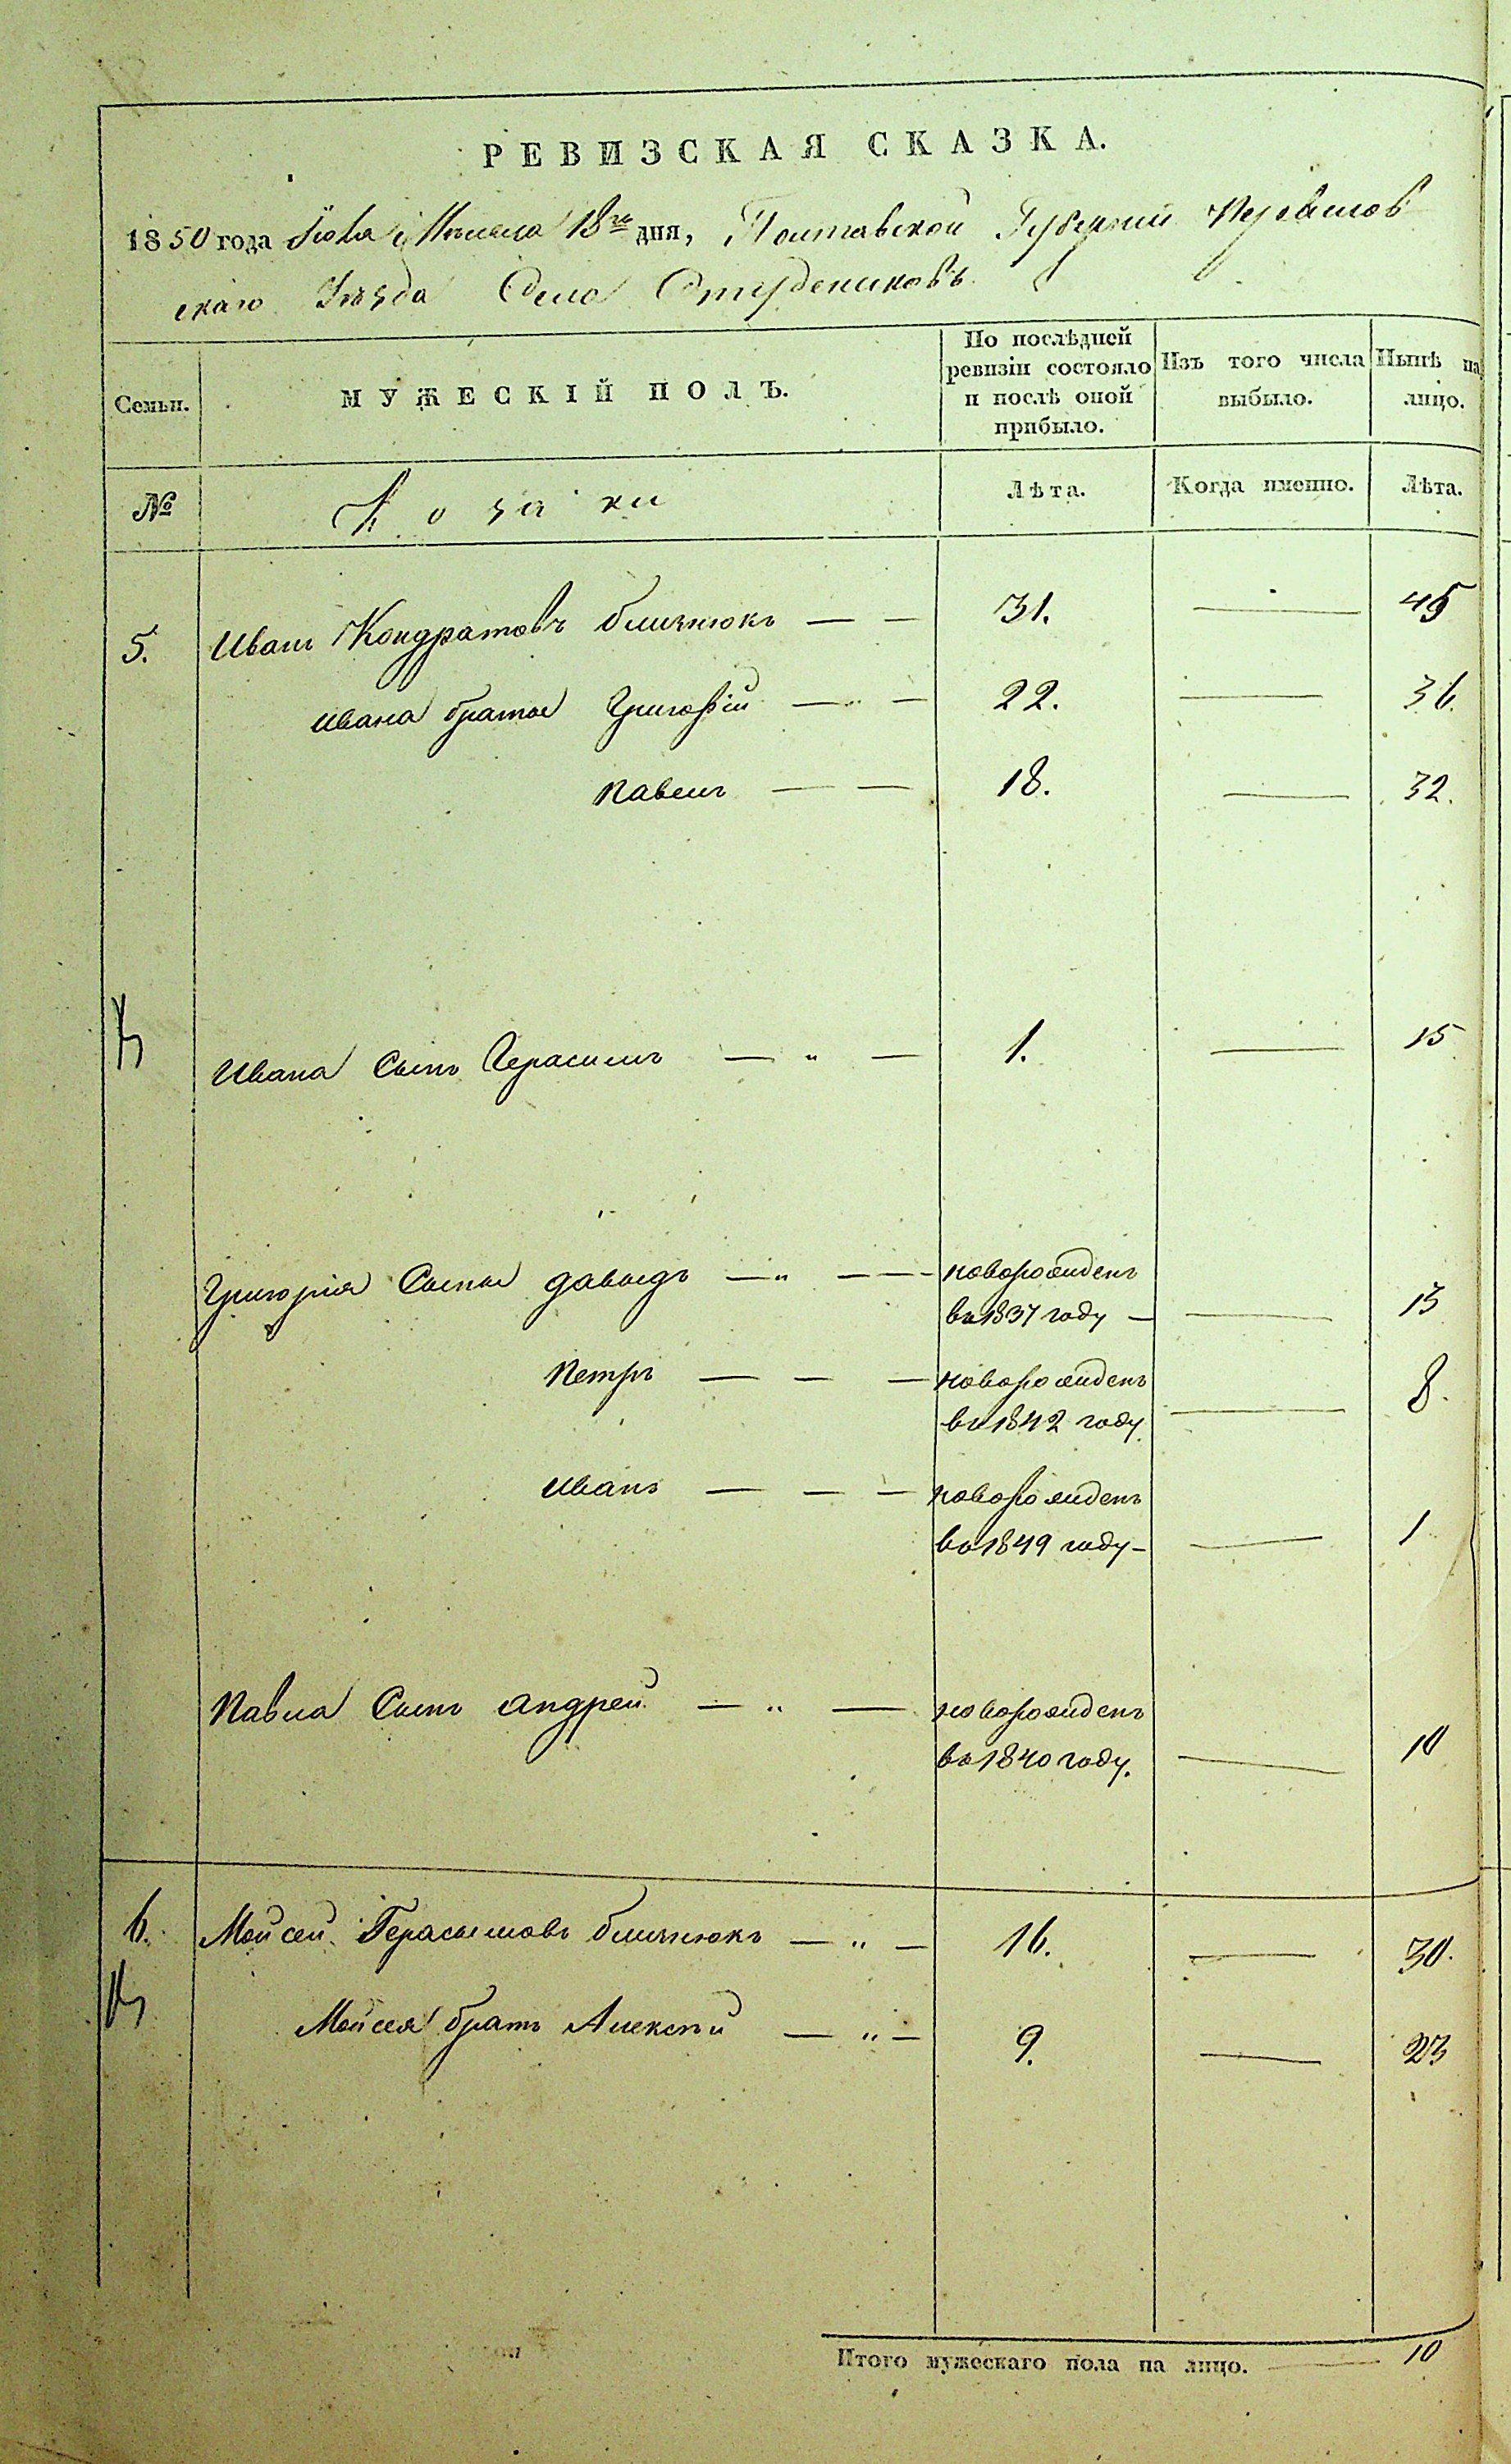 РЕВИЗСКАЯ СКАЗКА.
1850 года Іюля Мѣсяца 18го дня, Полтавской Губерніи Переяслов
скаго Уѣзда Село Студениковъ
Семьи.
МУЖЕСКІЙ ПОЛЪ.
По послѣдней
ревизіи состояло
и послѣ оной
прибыло.
Изъ того числа
выбыло.
Нынѣ на
лицо.
№
Козаки
Лѣта.
Когда именно.
Лѣта.
5. Иванъ Кондратовъ близнюкъ — — 31. — 45
Ивана братья Григорій — — 22. — 36.
Павелъ — — 18. — 32.
Ивана Сынъ Герасимъ — „ — 1. — 15
Григорія Сыны давыдъ — „ — — новорожденъ
въ 1837 году — — 13
Петръ — — — новорожденъ
въ 1842 году — 8.
Иванъ — — — новорожденъ
въ 1849 году — — 1
Павла Сынъ андрей — „ — новорожденъ
въ 1840 году. — 10
6. Мойсей Герасимовъ близнюкъ — „ — 16. — 30.
Мойсея братъ Алексѣй — „ — 9. — 23
Итого мужескаго пола на лицо. — 10